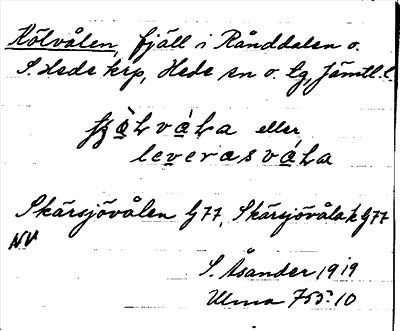 Kölvålen, fjäll i Rånddalen o.
S. Hede krp, Hede sn o. tg, Jämtl. l
eller
leverasvåLa
Skärsjövålen G77, Skärsjövåla k G77
NV
S. Åsander 1919
Ulma 755:10